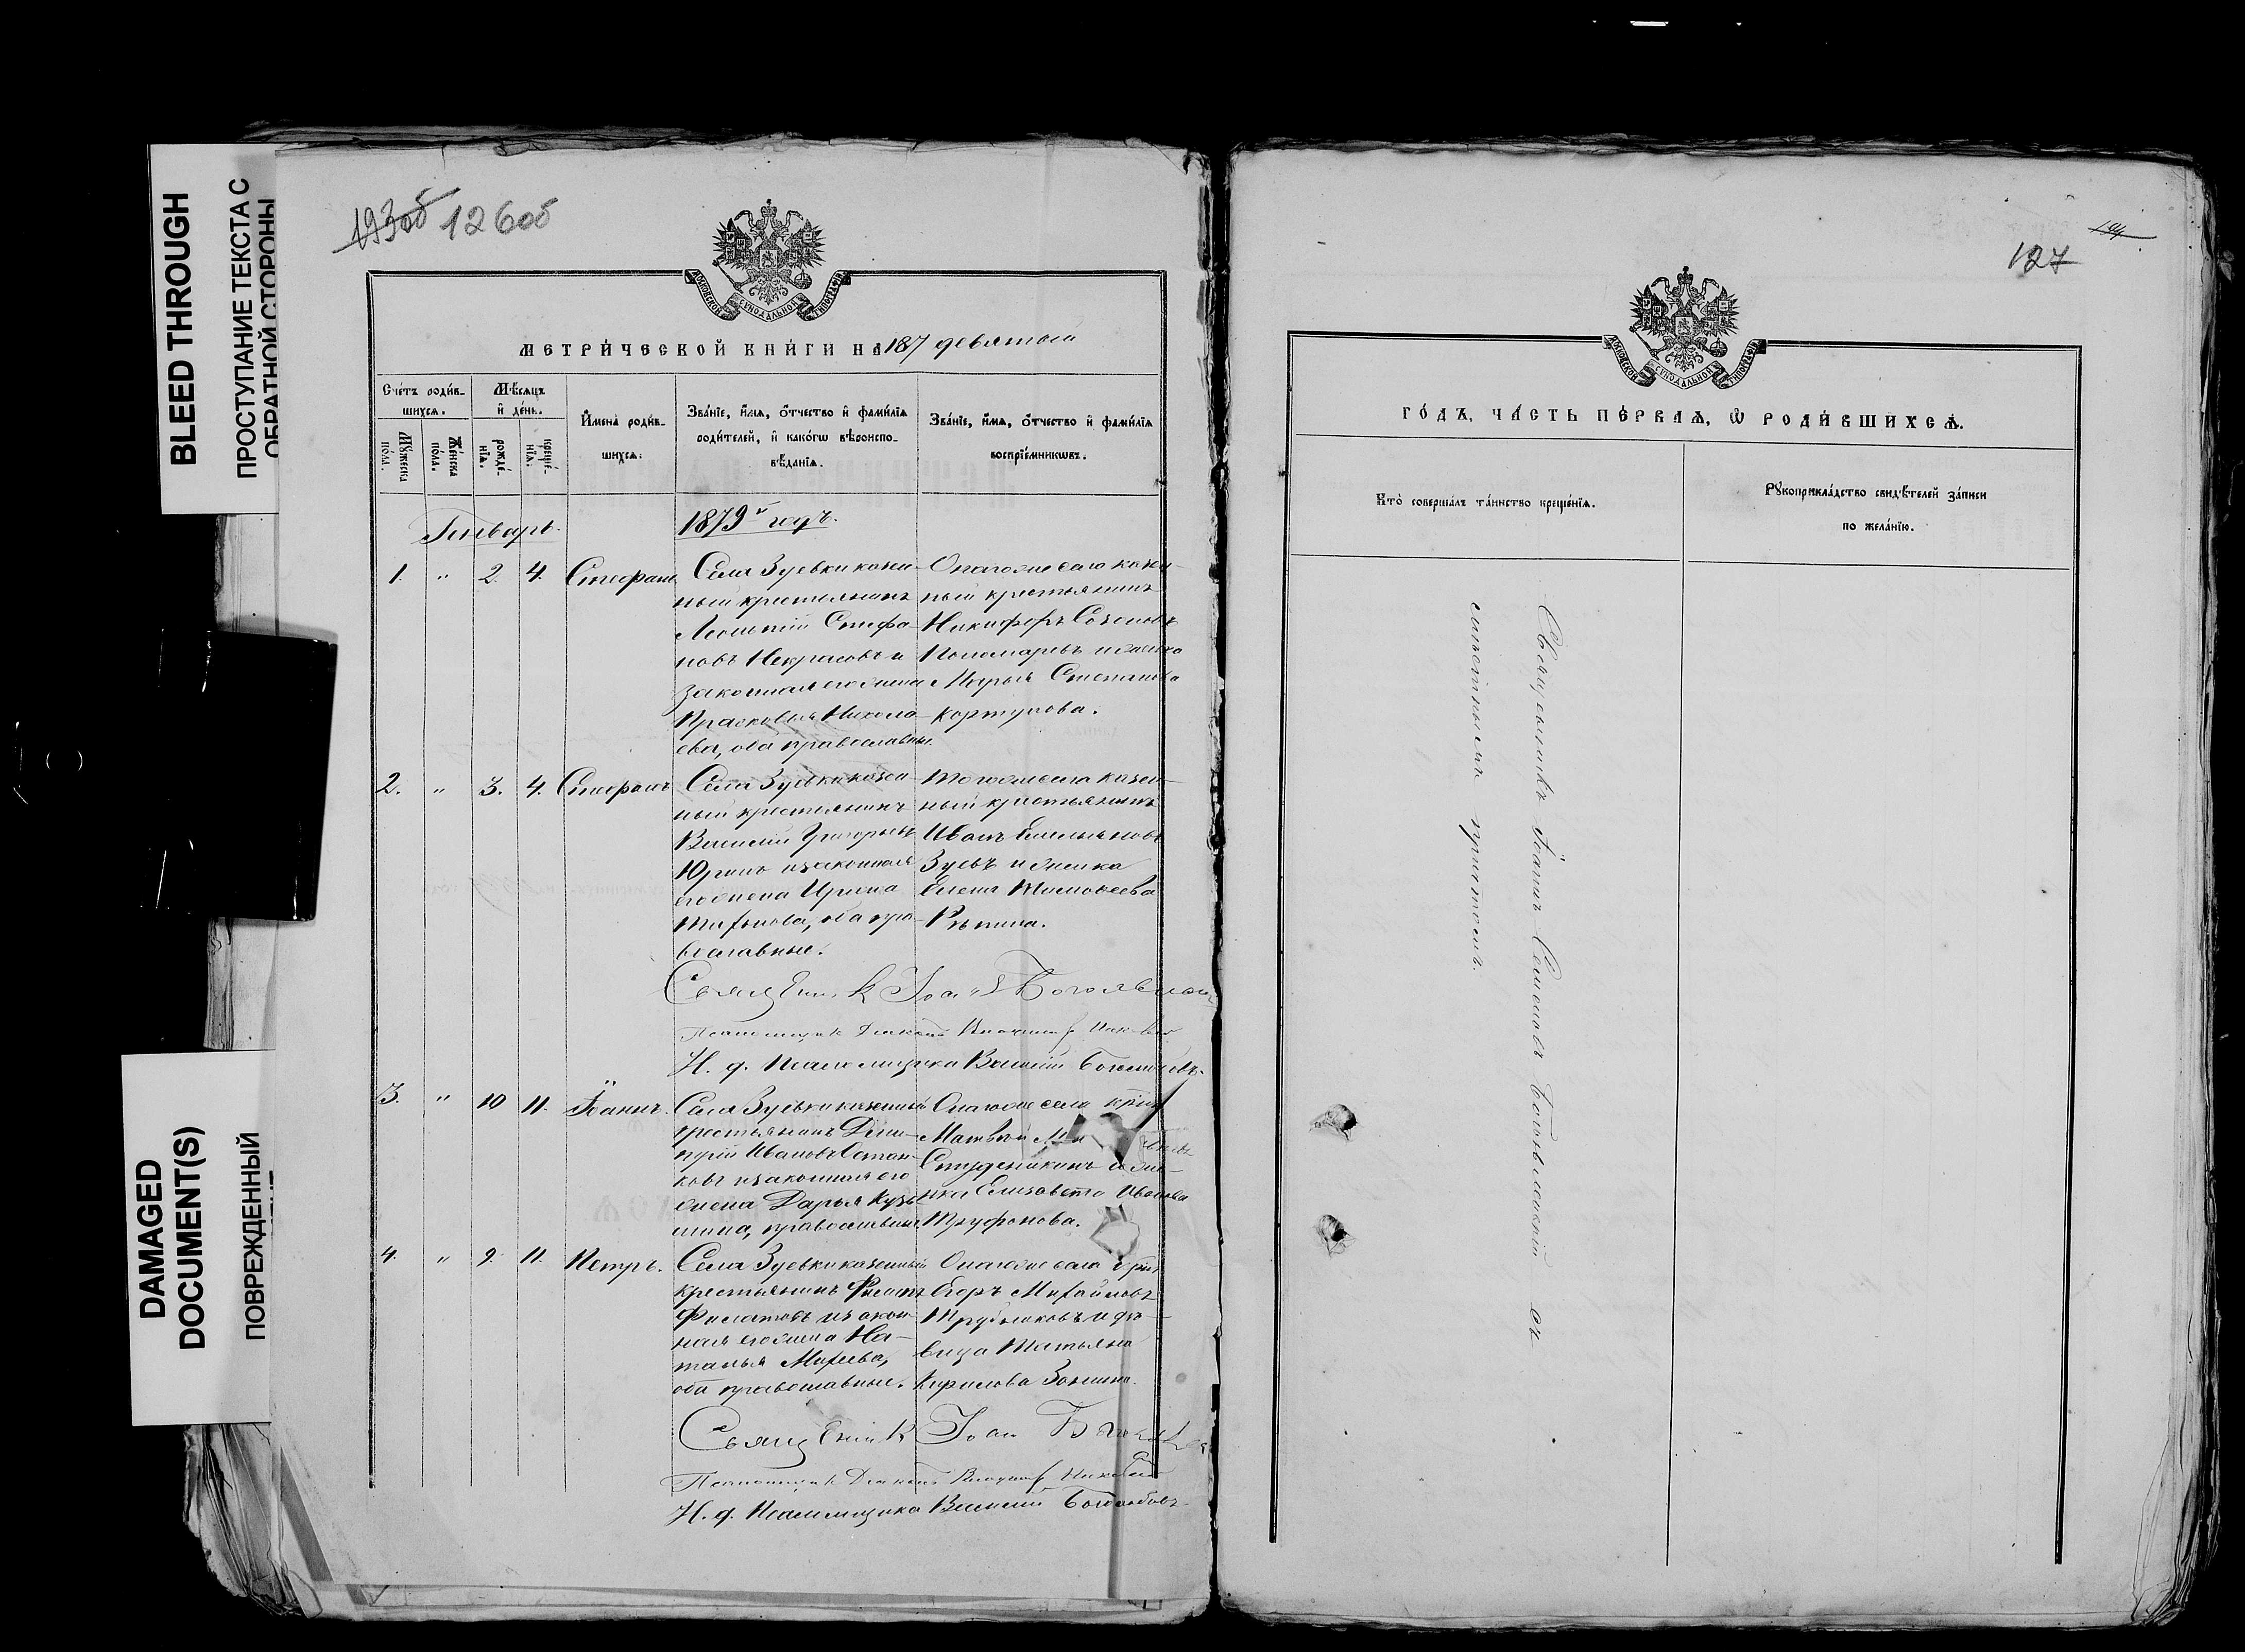 BLEED THROUGH
ПРОСТУПАНИЕ ТЕКСТА С
ОБРАТНОЙ СТОРОНЫ
DAMAGED
DOCUMENT(S)
ПОВРЕЖДЕННЫЙ
193об 126об
МОСКОВСКОЙ СУНОДАЛЬНОЙ ТИПОГРАФІИ
МЕТРИ́ЧЕСКОЙ КНИ́ГИ НА 187 девятый
Сче́тъ роди́в-
шихсѧ.
Мѣ́сѧцъ
и҆ де́нь.
Мꙋ́жеска
по́ла.
Же́нска
по́ла.
рожде́-
нїѧ.
креще́-
нїѧ.
И҆мена̀ роди́в-
шихсѧ.
Зва́нїе, и҆́мѧ, ѻ҆́тчество и҆ фами́лїѧ
роди́телей, и҆ како́гѡ вѣроиспо-
вѣ́данїѧ.
Зва́нїе, и҆́мѧ, ѻ҆́тчество и҆ фами́лїѧ
воспрїе́мникѡвъ.
Генварь. 1879й годъ.
1. " 2. 4. Стефанъ.
Села Зуевки казен-
ный крестьянинъ
Леонтій Стефа-
новъ Некрасовъ и
законная его жена
Прасковья Никола-
ева, оба православные.
Онагоже села казен-
ный крестьянинъ
Никифоръ Созоновъ
Пономаревъ и женка
Марья Степанова
Кортунова.
2. " 3. 4. Стефанъ.
Села Зуевки казен-
ный крестьянинъ
Василій Григорьевъ
Юринъ и законная
его жена Ирина
Тихонова, оба пра-
вославные.
Тогоже села казен-
ный крестьянинъ
Иванъ Емельяновъ
Зуевъ и женка
Елена Тимоѳеева
Репина.
Священникъ Іоаннъ
Псаломщикъ Діаконъ
И. д. Псаломщика Василій
3. " 10 11. Іоаннъ.
Села Зуевки казенный
крестьянинъ Дми-
трій Ивановъ
и законная его
жена Дарья Кузь-
мина, православные.
Онагоже села
Матвей
Студеникинъ и жен-
ка Елизавета Иванова
Труфонова.
4. " 9. 11. Петръ.
Села Зуевки казенный
крестьянинъ Филатъ
Филатовъ и закон-
ная его жена На-
талья Михеева,
оба православные.
Онагоже села
Егоръ Михайловъ
Трубниковъ и дѣ-
вица Татьяна
Кирилова Зонина.
Священникъ Іоаннъ
Псаломщикъ Діаконъ
И. д. Псаломщика Василій
127
МОСКОВСКОЙ СУНОДАЛЬНОЙ ТИПОГРАФІИ
ГО́ДЪ, ЧА́СТЬ ПЕ́РВАѦ, Ѡ҆ РОДИ́ВШИХСѦ.
Кто̀ соверша́лъ та́инство креще́нїѧ.
Рꙋкоприкла́дство свидѣ́телей за́писи
по жела́нїю.
Священникъ Іоаннъ Семеновъ Богоявленскій съ
причтомъ.